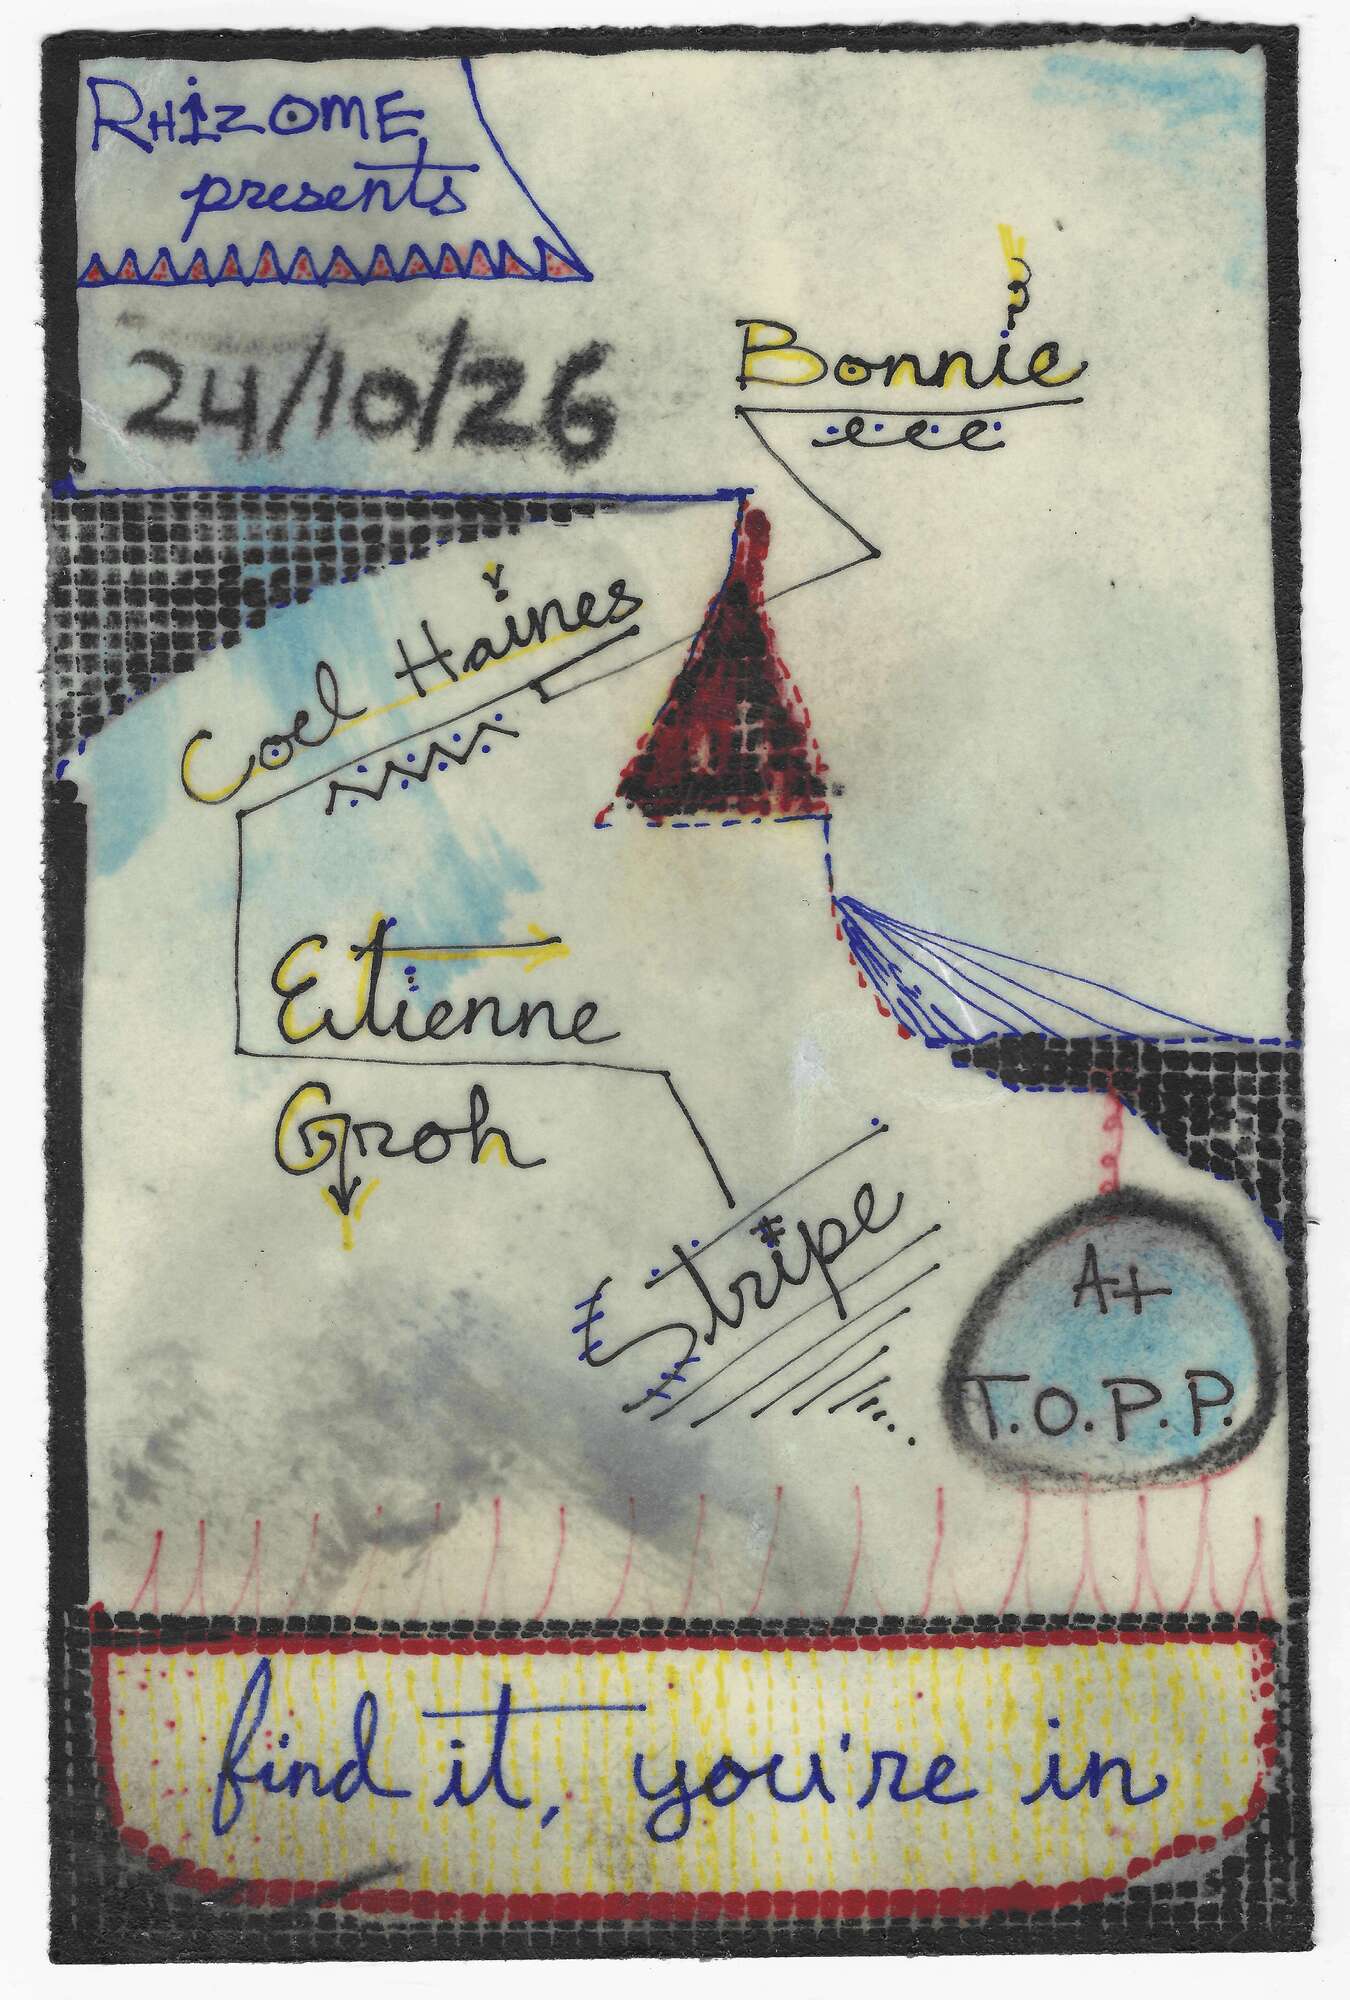 RHIZOME
presents
24/10/26
Bonnie
Coel Haines
Etienne
Groh
Stripe
A+
T.O.P.P.
find it, you're in